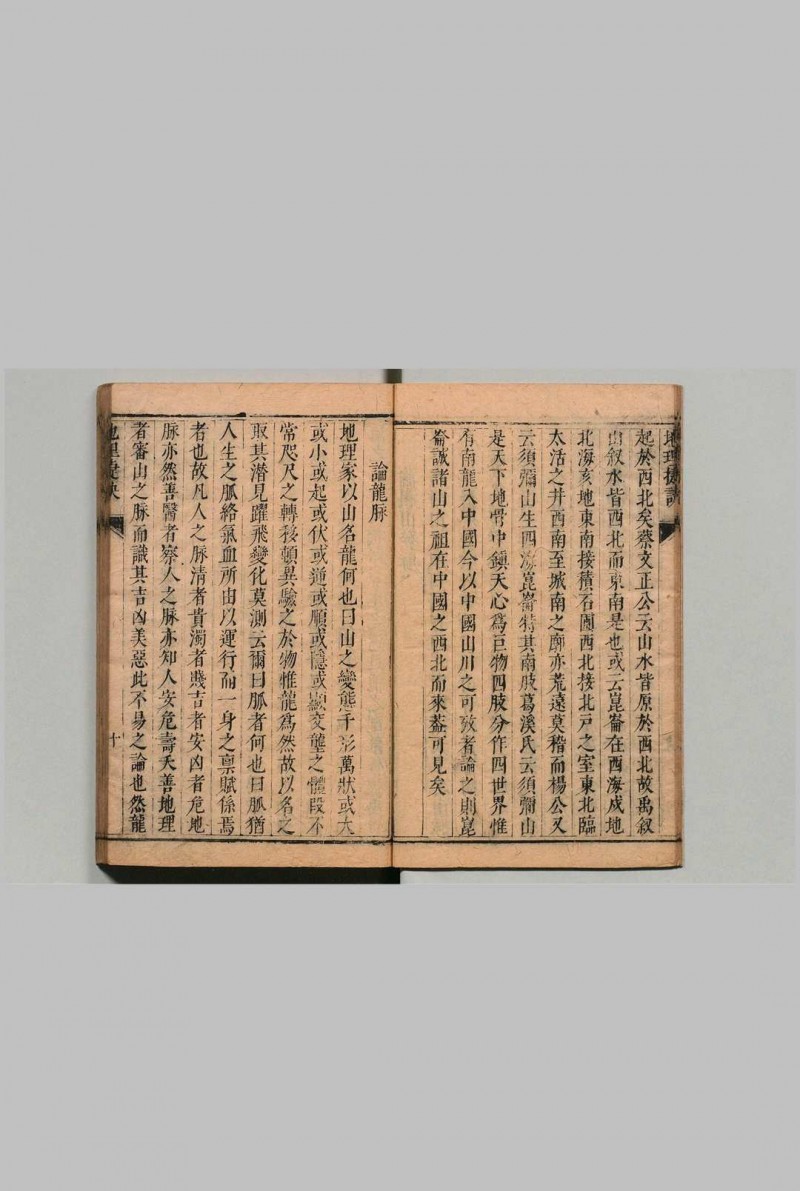 地理
起於西北矣蔡文正公云山水皆原於西北故禹叙
山叙水皆西北而東南是也或云崑崙在西海戍地
北海亥地東南接積石圃西北接北戸之室東北臨
太活之井西南至城南之廓亦荒遠莫稽而楊公又
云須彌山生四海崑崙特其南肢葛溪氏云須彌山
是天下地骨中鎮天心為巨物四肢分作四世界惟
有南龍入中國今以中國山川之可攷者論之則崑
崙誠諸山之祖在中國之西北而來葢可見矣
論龍脉
地理家以山名龍何也曰山之變態千形萬狀或大
或小或起或伏或逆或順或隱或顯支壟之體段不
常咫尺之轉移頓異驗之於物惟龍為然故以名之
取其潜見躍飛變化莫測云爾曰脈者何也曰脈猶
人生之脈絡氣血所由以運行而一身之禀賦係焉
者也故凡人之脉清者貴濁者賤吉者安凶者危地
脉亦然善醫者察人之脉亦知人安危壽夭善地理
者審山之脉而識其吉凶美惡此不易之論也然龍
十